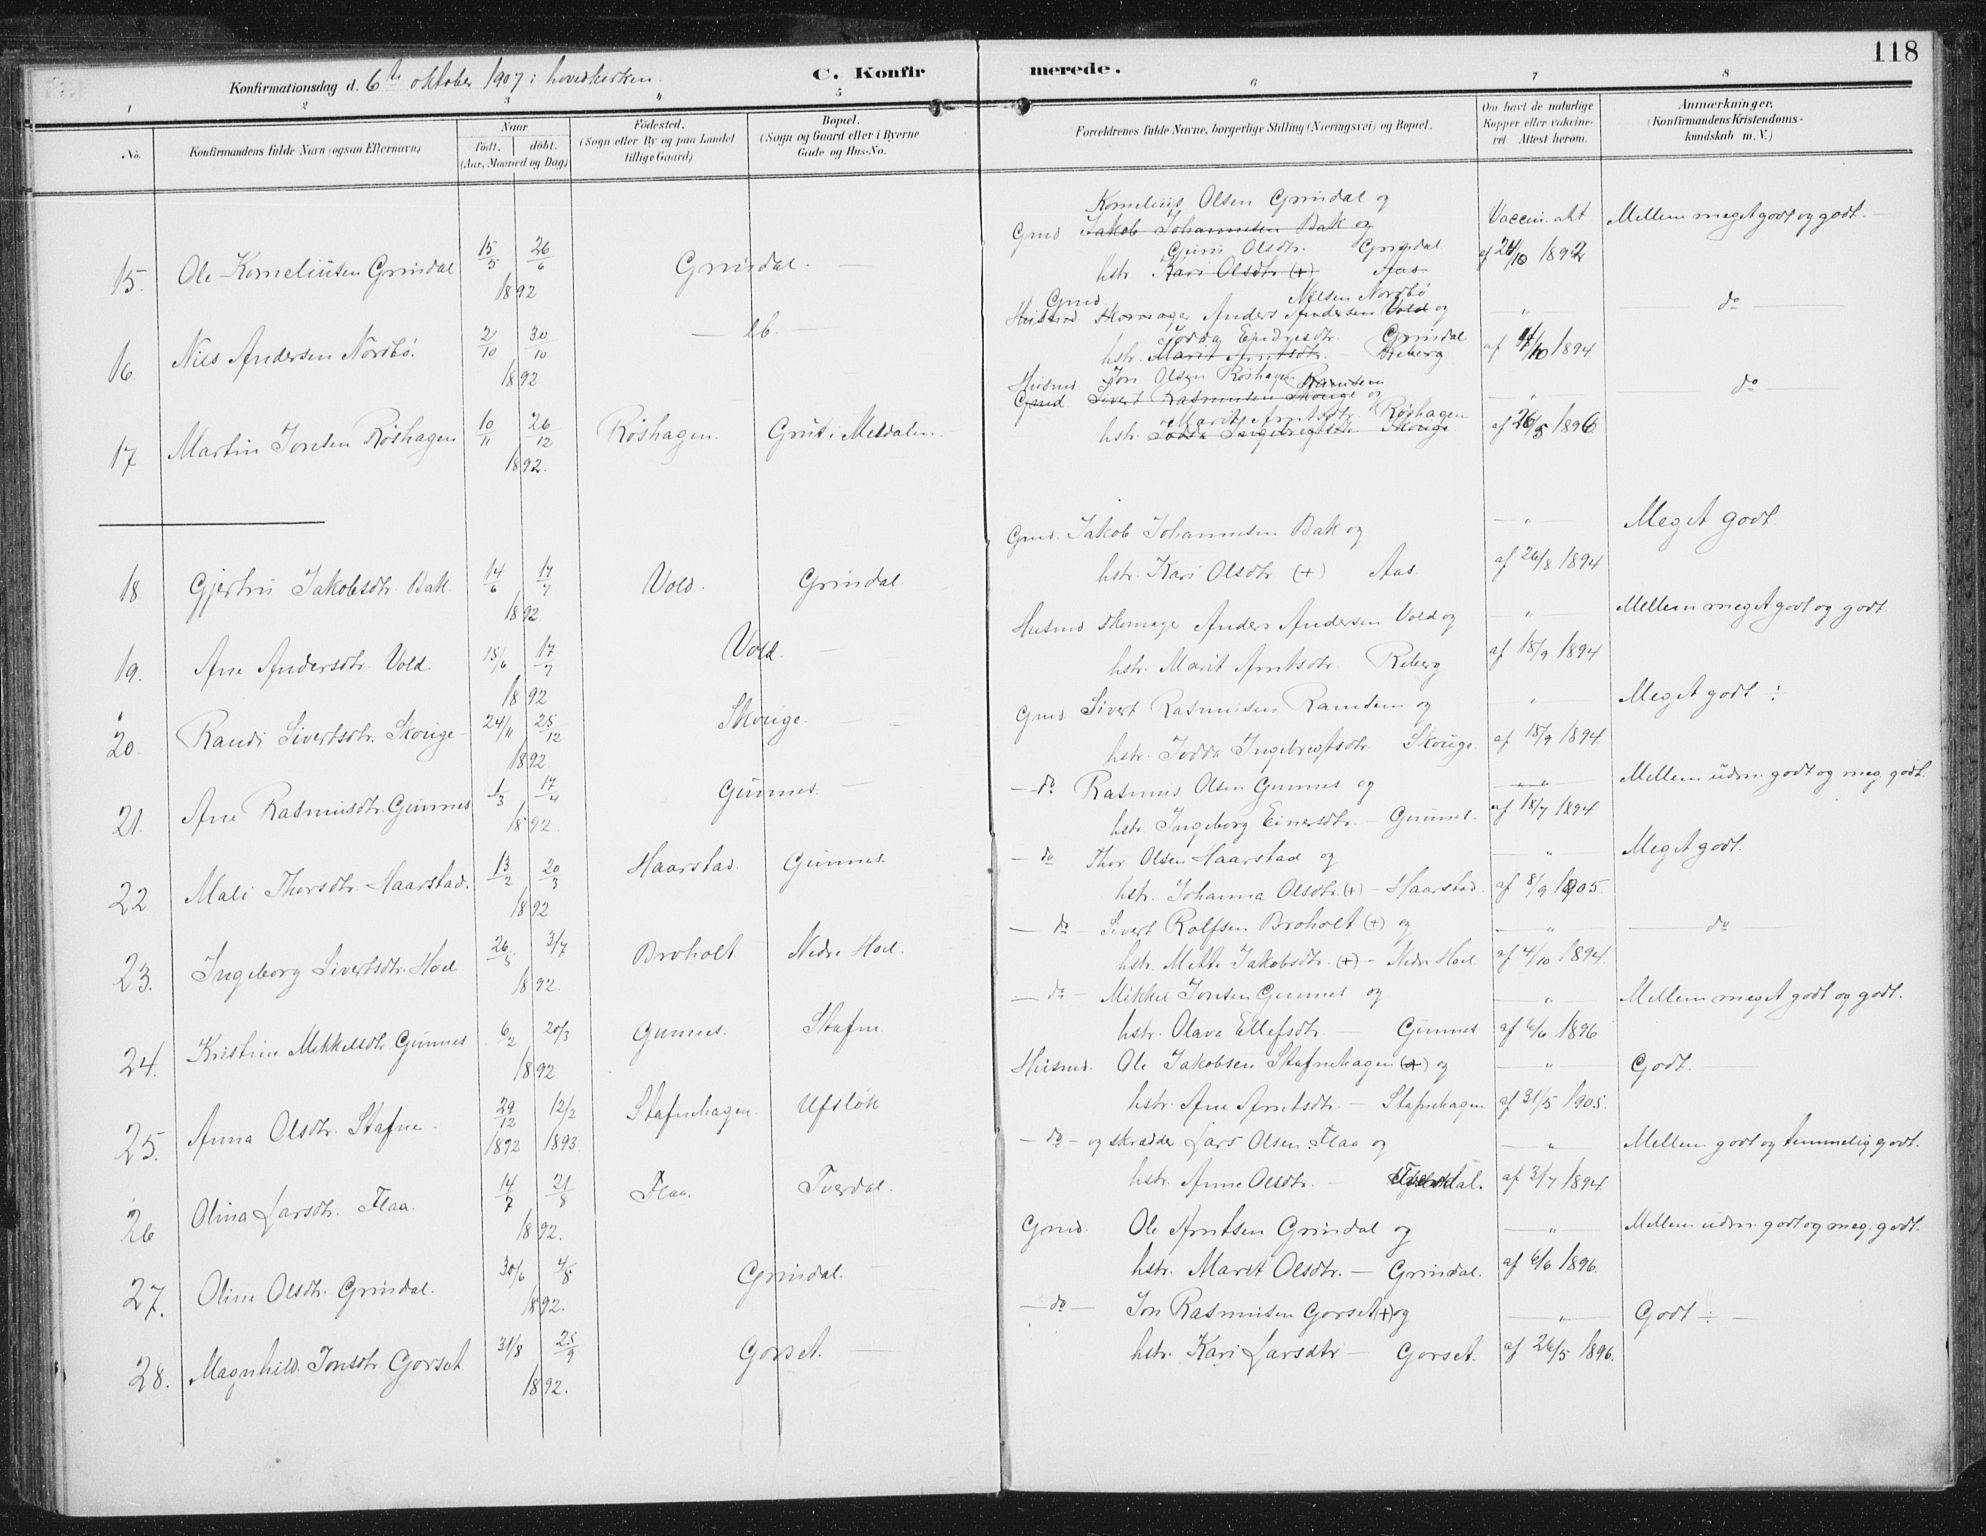 118
Konfirmationsdag d. 6te oktober 1907 i hovedkirken. C. Konfirmerede.
1 2 3 4 5 6 7 8
No. Konfirmandens fulde Navn (ogsaa Efternavn) Naar født. døbt. (Aar, Maaned og Dag) Fødested. (Sogn eller By og paa Landet tillige Gaard) Bopæl. (Sogn og Gaard eller i Byerne Gade og Hus-No. Forældrenes fulde Navne, borgerlige Stilling (Næringsvei) og Bopæl. Om havt de naturlige Kopper eller vaccineret. Attest herom. Anmærkninger. (Konfirmandens Kristendomskundskab m. V.)
Kornelius Olsen Grindal og
Gmd Jakob Johannesen Bak og Vaccin. akt Mellem meget godt og godt.
15. Ole Korneliusen Grindal 15/5 26/6 1892 Grindal. Guru Olsdtr. Grindal
hstr. Kari Olsdtr (+) Aas af 24/10 1892
Gmd. Nilsen Nordbø
Husmd skomager Anders Andersen Vold og " do
16. Nils Andersen Nordbø. 2/10 30/10 1892 lb. Jodda Endresdtr. Grindal
hstr. Marit Arntsdtr. Reberg af 4/10 1894
Husmd Jon Olsen Røshagen
Gmd Sivert Rasmusen Skouge og Ramsem " do
17 Martin Jonsen Røshagen 10/11 26/12 1892. Røshagen. Grut i Meldalen. Marit Arntsdtr. Røshagen
hstr. Jodda Ingebregtsdtr Skouge af 26/5 1896
Gmd. Jakob Johannesen Bak og " Meget godt
18. Gjertru Jakobsdtr. Bak. 14/6 17/7 1892 Vold. Grindal hstr. Kari Olsdtr (+) Aas. af 26/8 1894
Husmd skomager Anders Andersen Vold og " Mellem meget godt og godt
19. Ane Andersdtr. Vold 15/6 17/7 1892 Vold. hstr. Marit Arntsdtr Reberg af 18/9 1894
Gmd. Sivert Rasmusen Ramsem og " Meget godt ÷
20. Randi Sivertsdtr. Skouge 24/11 25/12 1892. Skouge. hstr. Jodda Ingebregtsdtr Skouge af 18/9 1894
do Rasmus Olsen Gunnes og " Mellem udm. godt og meg. godt
21. Ane Rasmusdtr. Gunnes 1/3 17/4 1892. Gunnes. hstr. Ingeborg Einersdtr. Gunnes. af 18/7 1894
do Thor Olsen Haarstad og " Meget godt.
22 Mali Thorsdtr. Haarstad. 13/2 20/3 1892 Haarstad. Gunnes. hstr. Johanna Olsdtr. (+) Haarstad. af 8/9 1905.
do Sivert Rolfsen Broholt (+) og " do
23. Ingeborg Sivertsdtr. Hoel 26/5 3/7 1892. Broholt Nedre Hoel. hstr. Mette Jakobsdtr. (+) Nedre Hoel af 4/10 1894
do Mikkel Jonsen Gunnes og " Mellem meget godt og godt.
24. Kristine Mikkelsdtr Gunnes 6/2 20/3 1892 Gunnes. Stafne hstr. Olava Ellefsdtr. Gunnes af 6/6 1896
Husmd. Ole Jakobsen Stafnehagen (+) og " Godt.
25. Anna Olsdtr. Stafne. 29/12 1892 12/2 1893. Stafnehagen. Ufsløk hstr. Ane Arntsdtr. Stafnehagen af 31/5 1905.
do og skrædder Lars Olsen Flaa og " Mellem godt og temmelig godt.
26 Olina Larsdtr. Flaa. 14/7 21/8 1892. Flaa. Tverdal. hstr. Anne Olsdtr. af 3/7 1894
Gmd. Ole Arntsen Grindal og " Mellem udm. godt og meg. godt.
27. Oline Olsdtr. Grindal. 30/6 4/8 1892. Grindal. hstr. Marit Olsdtr. Grindal. af 6/6 1896.
do Jon Rasmusen Gorset (+) og " Godt ÷
28. Magnhild Jonsdtr Gorset 31/8 25/9 1892. Gorset. hstr. Kari Larsdtr Gorset. af 26/5 1896.